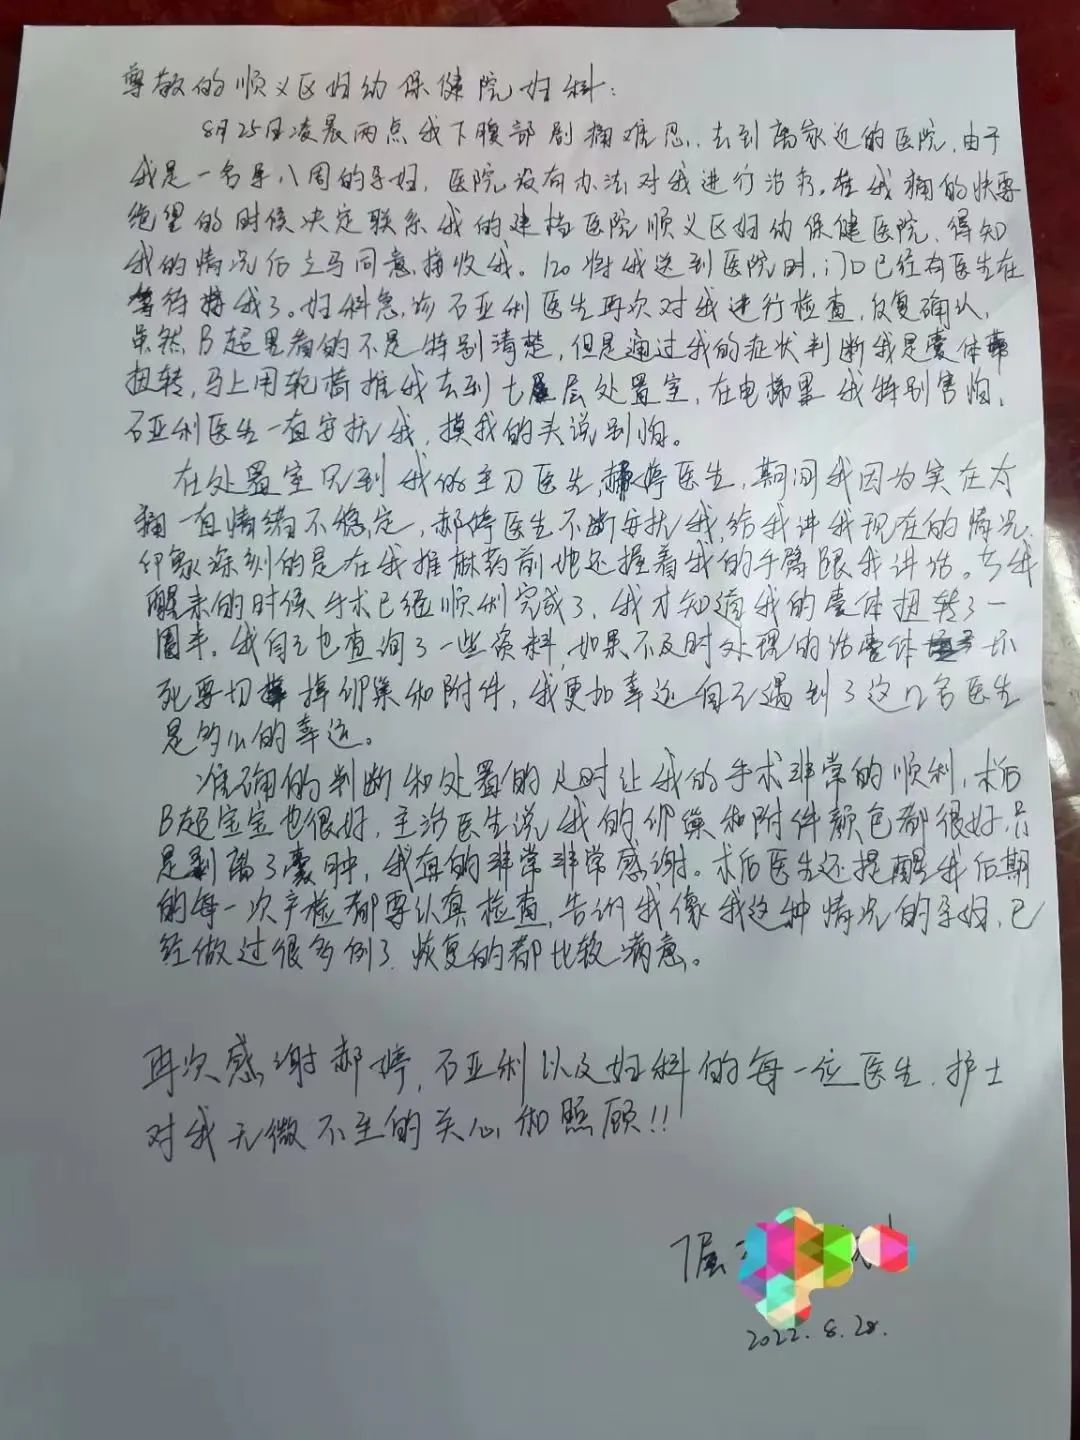 尊敬的顺义区妇幼保健院妇科:
8月25日凌晨两点我下腹部剧痛难忍,去到离家近的医院,由于
我是一名孕八周的孕妇,医院没有办法对我进行治疗。在我痛的快要
绝望的时候决定联系我的建档医院顺义区妇幼保健医院,得知
我的情况后立马同意接收我。120将我送到医院时,门口已经有医生在
等待我了。妇科急诊石亚利医生再次对我进行检查,反复确认,
虽然B超里看的不是特别清楚,但是通过我的症状判断我是囊体
扭转,马上用轮椅推我去到七层处置室,在电梯里我特别害怕,
石亚利医生一直安抚我,摸我的头说别怕。
在处置室见到我的主刀医生,郝婷医生,期间我因为实在太
痛一直情绪不稳定,郝婷医生不断安抚我,给我讲我现在的情况,
印象深刻的是在我推麻药前她还握着我的手臂跟我讲话。当我
醒来的时候手术已经顺利完成了,我才知道我的囊体扭转了一
圈半。我自己也查询了一些资料,如果不及时处理的话囊体坏
死要切掉卵巢和附件,我更加幸运自己遇到了这几名医生
是多么的幸运。
准确的判断和处置的及时让我的手术非常的顺利,术后
B超宝宝也很好,主治医生说我的卵巢和附件颜色都很好,只
是剥离了囊肿,我真的非常非常感谢。术后医生还提醒我后期
的每一次产检都要认真检查,告诉我像我这种情况的孕妇,已
经做过很多例了,恢复的都比较满意。
再次感谢郝婷,石亚利以及妇科的每一位医生,护士
对我无微不至的关心和照顾!!
2022.8.28.